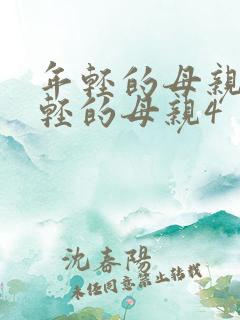 年轻的母親
轻的母親4
沈春陽
未经同意禁止转载